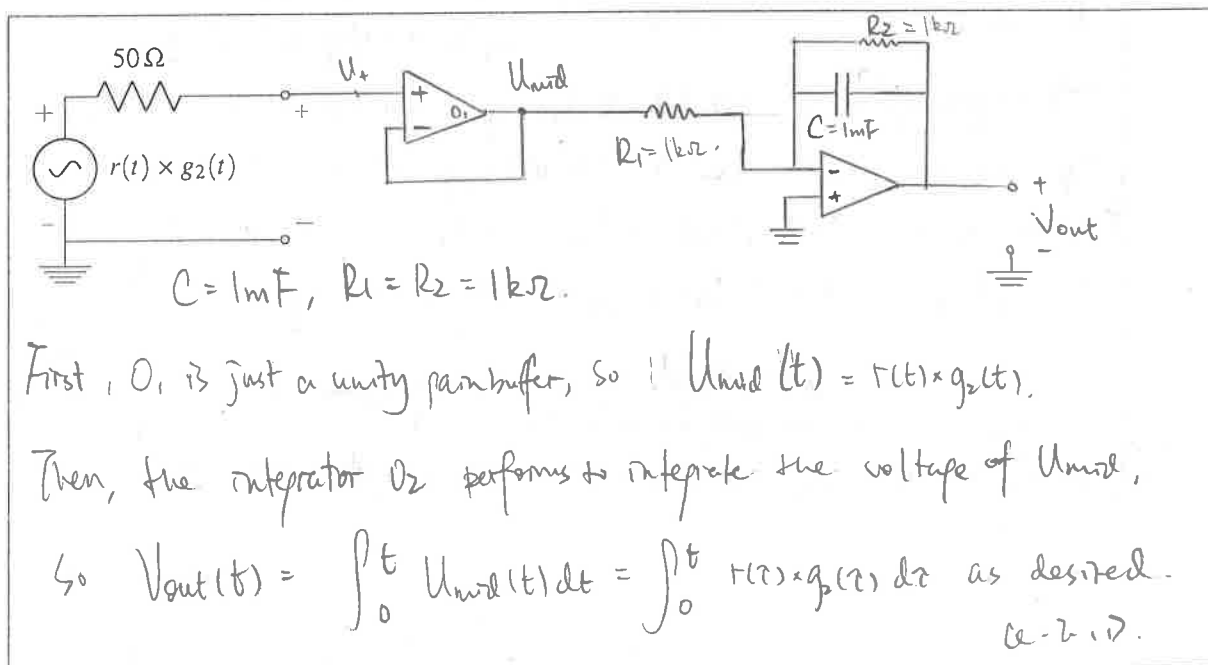 R2 = 1kΩ
50Ω
U+
Umid
+
+
+
O1
−
C = 1mF
r(t) × g2(t)
R1 = 1kΩ.
−
+
+
Vout
−
−
−
C = 1mF, R1 = R2 = 1kΩ.
First, O1 is just a unity gain buffer, so : Umid(t) = r(t) × g2(t).
Then, the integrator O2 performs to integrate the voltage of Umid,
So Vout(t) = ∫0^t Umid(t) dt = ∫0^t r(τ) × g2(τ) dτ as desired.
Q.E.D.